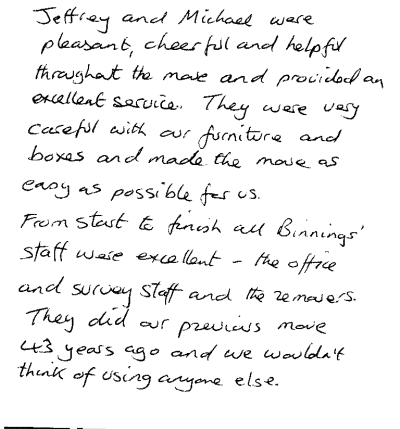 Jeffrey and Michael were
pleasant, cheerful and helpful
throughout the move and provided an
excellent service. They were very
careful with our furniture and
boxes and made the move as
easy as possible for us.
From start to finish all Binnings'
staff were excellent - the office
and survey staff and the removers.
They did our previous move
43 years ago and we wouldn't
think of using anyone else.